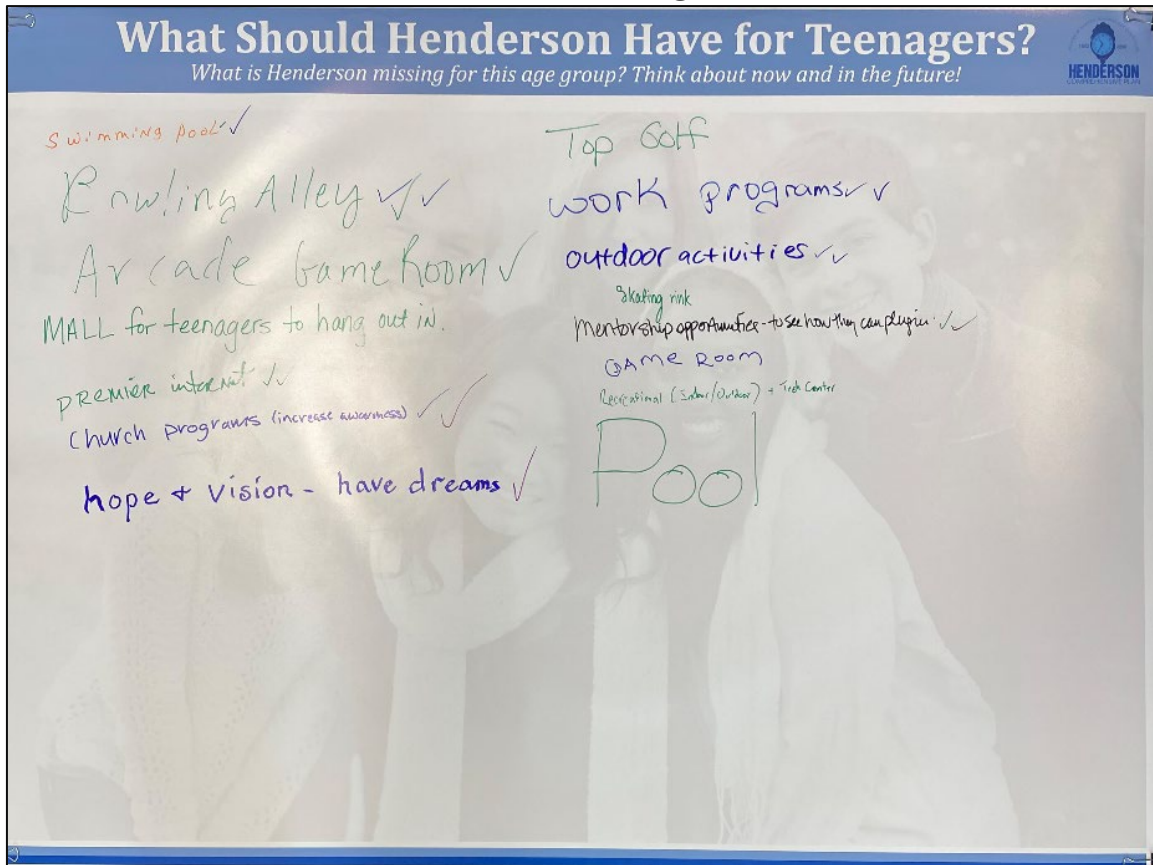 What Should Henderson Have for Teenagers?
What is Henderson missing for this age group? Think about now and in the future!
HENDERSON
COMPREHENSIVE PLAN
Swimming pool ✓
Bowling Alley ✓✓
Arcade Game Room ✓
MALL for teenagers to hang out in.
PREMIER internet ✓✓
Church programs (increase awareness) ✓✓
hope + vision - have dreams ✓
Top Golf
work programs ✓✓
outdoor activities ✓✓
Skating rink
Mentorship opportunities - to see how they can plugin. ✓✓
GAME ROOM
Recreational (Indoor/Outdoor) + Tech Center
Pool